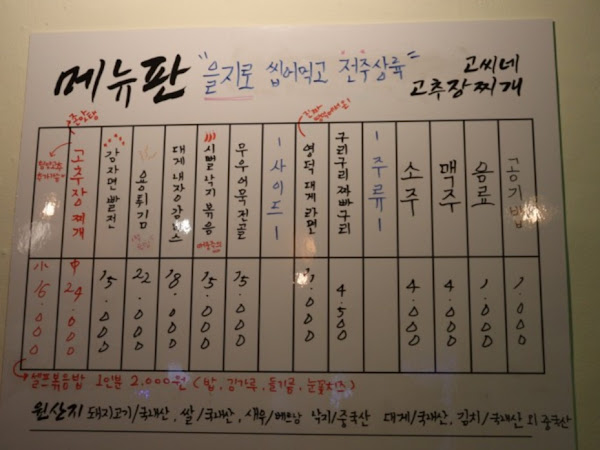 메뉴판
"을지로 씹어먹고 전주상륙"
고씨네
고추장찌개
고추장찌개
小 16.000
中 24.000
감자면빨전
15.000
옹튀김
22.000
대게 내장 감바스
18.000
시뻘낙지볶음
15.000
무우어묵전골
15.000
ㅣ사이드ㅣ
영덕대게라면
11.000
구리구리짜빠구리
4.500
ㅣ주류ㅣ
소주
4.000
맥주
4.000
음료
1.000
공기밥
1.000
셀프볶음밥 1인분 2.000원 (밥, 김가루, 들기름, 눈꽃치즈)
원산지 돼지고기/국내산, 쌀/국내산, 새우/베트남 낙지/중국산 대게/국내산, 김치/국내산 외 중국산